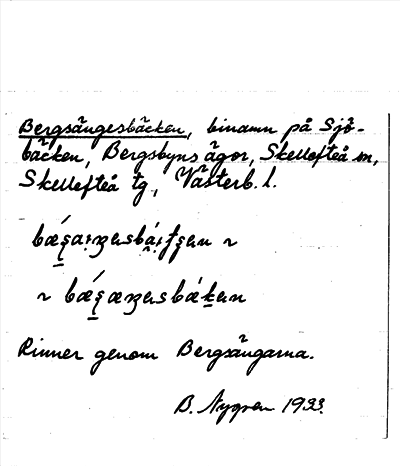 Bergsängesbäcken, binamn på Sjö-
bäcken, Bergsbyns ägor, Skellefteå sn,
Skellefteå tg, Västerb. l.
Rinner genom Bergsängarna.
B. Nygren 1933.